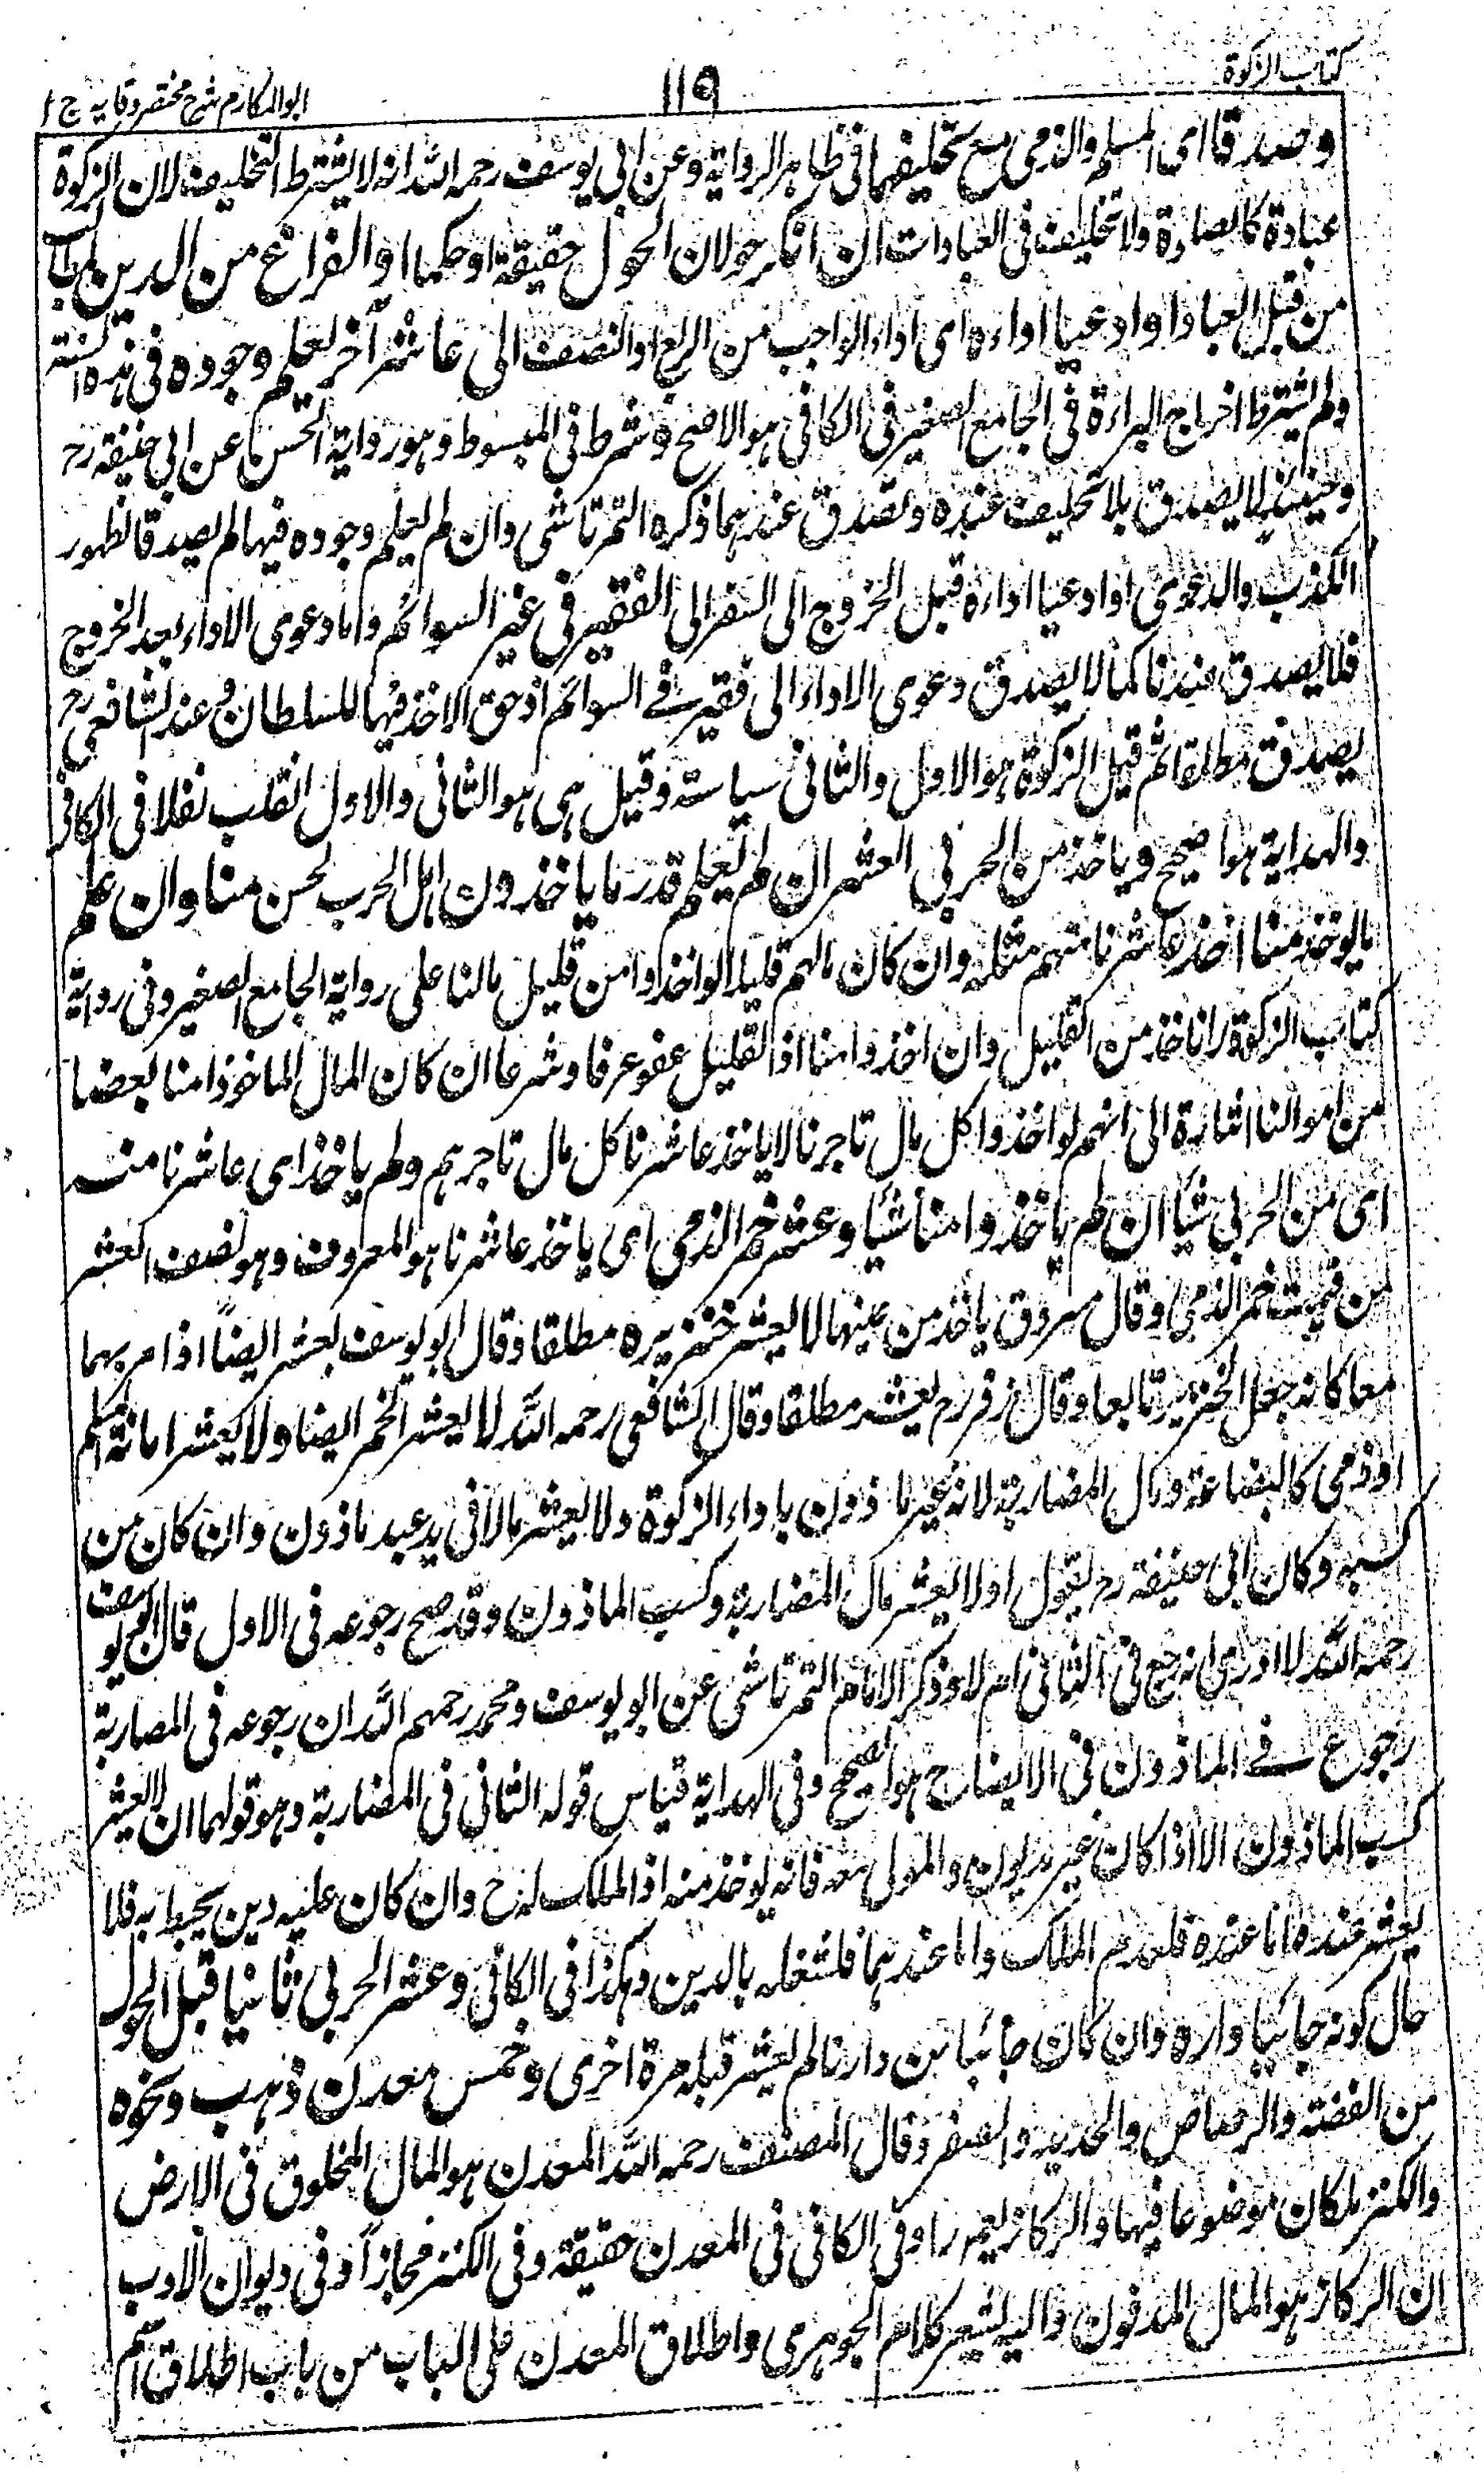 كتاب الزكوة
١١٩
ابو المكارم شرح مختصر وقايه ج ١
وصدقا اى المسلم والذمى مع تحليفهما فى ظاهر الرواية وعن ابى يوسف رحمه الله انه لا يشترط التحليف لان الزكوة
عبادة كالصلوة ولا تحليف فى العبادات ان انكر حولان الحول حقيقة او حكما او الفراغ من الدين
من قبل العباد او ادعيا اداءه اى اداء الواجب من الربع او النصف الى عاشر آخر يعلم وجوده فى هذه السنة
ولم يشترط اخراج البراءة فى الجامع الصغير فى الكافى هو الاصح وشرط فى المبسوط وهو رواية الحسن عن ابى حنيفة رح
وحينئذ لا يصدق بلا تحليف عنده ويصدق عندهما ذكره التمرتاشى وان لم يعلم وجوده فيها لم يصدقا لظهور
الكذب والدعوى او ادعيا اداءه قبل الخروج الى السفر الى الفقير فى غير السوائم واما دعوى الاداء بعد الخروج
فلا يصدق عندنا كما لا يصدق دعوى الاداء الى فقير فے السوائم اذ حق الاخذ فيها للسلطان وعند الشافعى رح
يصدق مطلقا ثم قيل الزكوة هو الاول والثانى سياسته وقيل هى هو الثانى والاول انقلب نفلا فى الكافى
والهداية هو الصحيح وياخذ من الحربى العشر ان لم يعلم قدر ما ياخذون اهل الحرب نحن منا وان علم
ما يوخذ منا اخذ عاشرنا منهم مثله وان كان مالهم قليلا لو اخذوا من قليل مالنا على رواية الجامع الصغير وفى رواية
كتاب الزكوة لا ناخذ من القليل وان اخذوا منا اذ القليل عفو عرفا وشرعا ان كان المال الماخوذ منا بعضا
من اموالنا اشارة الى انهم لو اخذوا كل مال تاجرنا لا ياخذ عاشرنا كل مال تاجرهم ولم ياخذ اى عاشرنا منه
اى من الحربى شيئا ان لم ياخذوا منا شيئا وعشر خمر الذمى اى ياخذ عاشرنا هو المعروف وهو نصف العشر
من قيمت خمر الذمى وقال مسروق ياخذ من عينها لا يعشر خنزيره مطلقا وقال ابو يوسف يعشر ايضًا اذا مر بهما
معا كانه جعل الخنزير تابعا وقال زفر رح يعشر مطلقا وقال الشافعى رحمه الله لا يعشر الخمر ايضا ولا يعشر امانة المسلم
او ذمى كالبضاعة ومال المضاربة لانه غير ماذون باداء الزكوة ولا يعشر مالا فى يد عبد ماذون وان كان من
كسبه وكان ابى حنيفه رح يقول اولا يعشر مال المضاربة وكسب الماذون وقد صح رجوعه فى الاول قال ابو يوسف
رحمه الله لا ادرى انه رجع فى الثانى ام لا وذكر الامام التمرتاشى عن ابو يوسف ومحمد رحمهم الله ان رجوعه فى المضاربة
رجوع فے الماذون فى الايضاح هو الصحيح وفى الهداية قياس قوله الثانى فى المضاربة وهو قولهما ان لا يعشر
كسب الماذون الا اذا كان غير مديون والمولى معه فانه يوخذ منه اذ الملك له ح وان كان عليه دين يحيط به فلا
يعشر عنده اما عنده فلعدم الملك واما عندهما فلشغله بالدين وهكذا فى الكافى وعشر الحربى ثانيا قبل الحول
حال كونه جائيا داره وان كان جائيا من دارنا لم يعشر قبله مرة اخرى وخمس معدن ذهب ونحوه
من الفضة والرصاص والحديد والصفر وقال المصنف رحمه الله المعدن هو المال المخلوق فى الارض
والكنز ما كان موضوعا فيها والركاز يعمهما وفى الكافى فى المعدن حقيقة وفى الكنز مجازاً وفى ديوان الادب
ان الركاز هو المال المدفون واليه يشير كلام الجوهرى واطلاق المعدن على الباب من باب اطلاق اسم